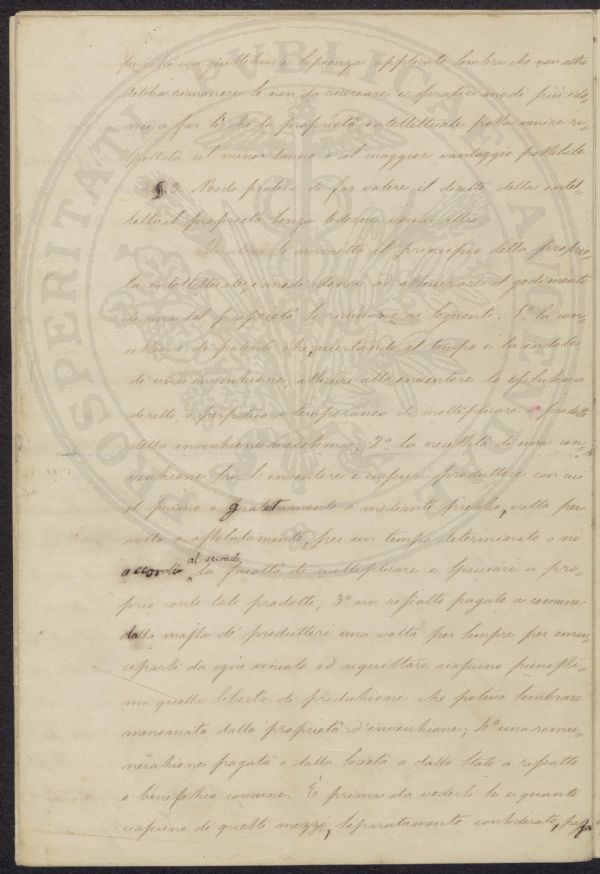 con rettitudine e sapienza applicate sembra che non altro
debba rimanere se non da ricercare i pratici modi più ido-
nei a far sì che la proprietà intellettuale possa venire ri-
spettata col minor danno e col maggior vantaggio possibile
§. 3. Modo pratico di far valere il diritto della intel-
il proprietà senza
si ammetta il principio della proprie-
tà intellettuale, i modi idonei ad assicurare il godimento
di una tal proprietà si riducono ai seguenti: 1º la con-
cessione di patente che, accertando il tempo e la indole
di una invenzione, assicura allo inventore lo esclusivo
diritto, o perpetuo o temporaneo di moltiplicare i prodotti
della invenzione medesima; 2º la necessità di una con-
venzione tra l'inventore e ciascun produttore con cui
il primo o gratuitamente o mediante premio, volta per
volta o assolutamente, per un tempo determinato o no
accordi al secondo la facoltà di moltiplicare e spacciare a pro-
prio conto tali prodotti; 3º un riscatto pagato a comune
dalla massa de' produttori una volta per sempre per eman-
ciparsi da ogni vincolo ed acquistare ciascuno pienissi-
ma quella libertà di produzione che poteva sembrare
menomata dalla proprietà d'invenzione; 4º una remu-
nerazione pagata o dalla Società o dallo Stato a riscatto
e benefizio comune. E prima da vedersi se e quanto
ciascuno di questi mezzi, separatamente considerato,
PROSPERITATI PVBLICAE AVGENDAE